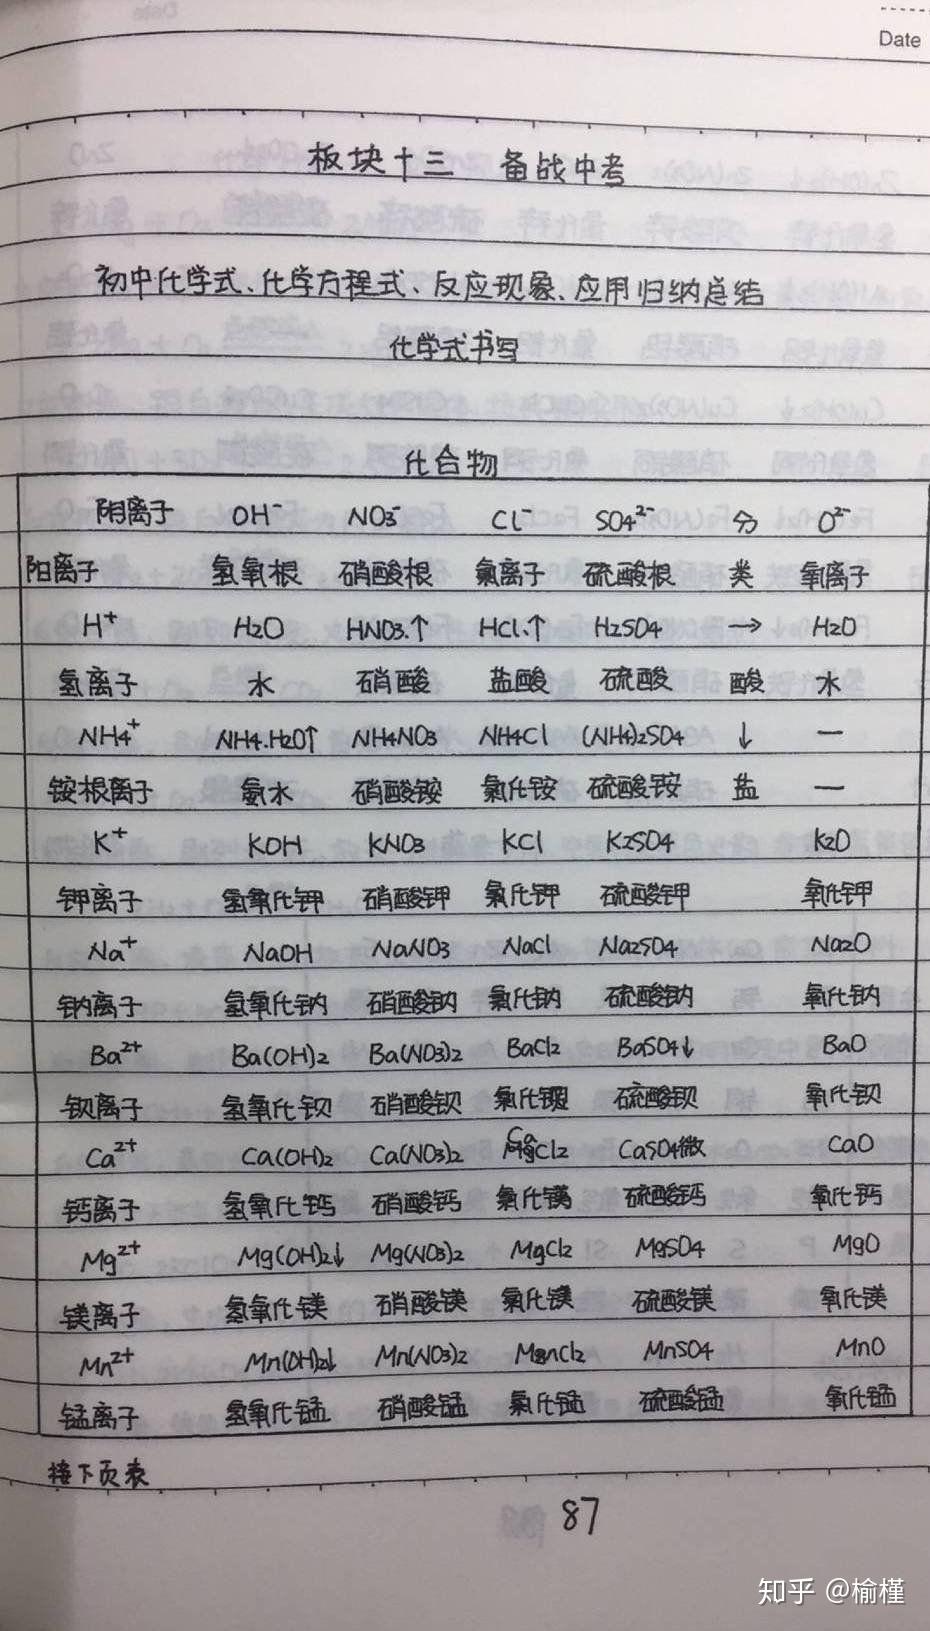 Date
板块十三 备战中考
初中化学式、化学方程式、反应现象、应用归纳总结
化学式书写
化合物
阴离子 OH⁻ NO3⁻ CL⁻ SO4²⁻ 分 O²⁻
阳离子 氢氧根 硝酸根 氯离子 硫酸根 类 氧离子
H⁺ H2O HNO3.↑ HCl.↑ H2SO4 → H2O
氢离子 水 硝酸 盐酸 硫酸 酸 水
NH4⁺ NH4.H2O↑ NH4NO3 NH4Cl (NH4)2SO4 ↓ —
铵根离子 氨水 硝酸铵 氯化铵 硫酸铵 盐 —
K⁺ KOH KNO3 KCl K2SO4 K2O
钾离子 氢氧化钾 硝酸钾 氯化钾 硫酸钾 氧化钾
Na⁺ NaOH NaNO3 NaCl Na2SO4 Na2O
钠离子 氢氧化钠 硝酸钠 氯化钠 硫酸钠 氧化钠
Ba²⁺ Ba(OH)2 Ba(NO3)2 BaCl2 BaSO4↓ BaO
钡离子 氢氧化钡 硝酸钡 氯化钡 硫酸钡 氧化钡
Ca²⁺ Ca(OH)2 Ca(NO3)2 CaCl2 CaSO4微 CaO
钙离子 氢氧化钙 硝酸钙 氯化镁 硫酸钙 氧化钙
Mg²⁺ Mg(OH)2↓ Mg(NO3)2 MgCl2 MgSO4 MgO
镁离子 氢氧化镁 硝酸镁 氯化镁 硫酸镁 氧化镁
Mn²⁺ Mn(OH)2↓ Mn(NO3)2 MnCl2 MnSO4 MnO
锰离子 氢氧化锰 硝酸锰 氯化锰 硫酸锰 氧化锰
接下页表
87
知乎 @榆槿